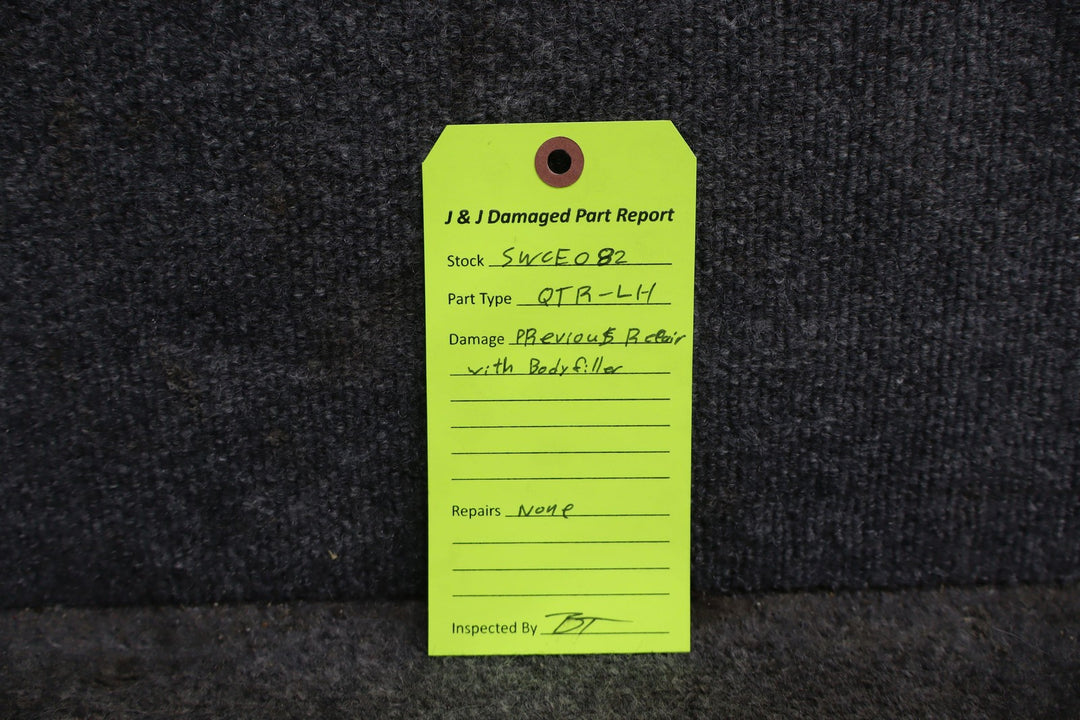 J & J Damaged Part Report
Stock SWCE082
Part Type QTR-LH
Damage PRevious Repair
with Bodyfiller
Repairs None
Inspected By BT